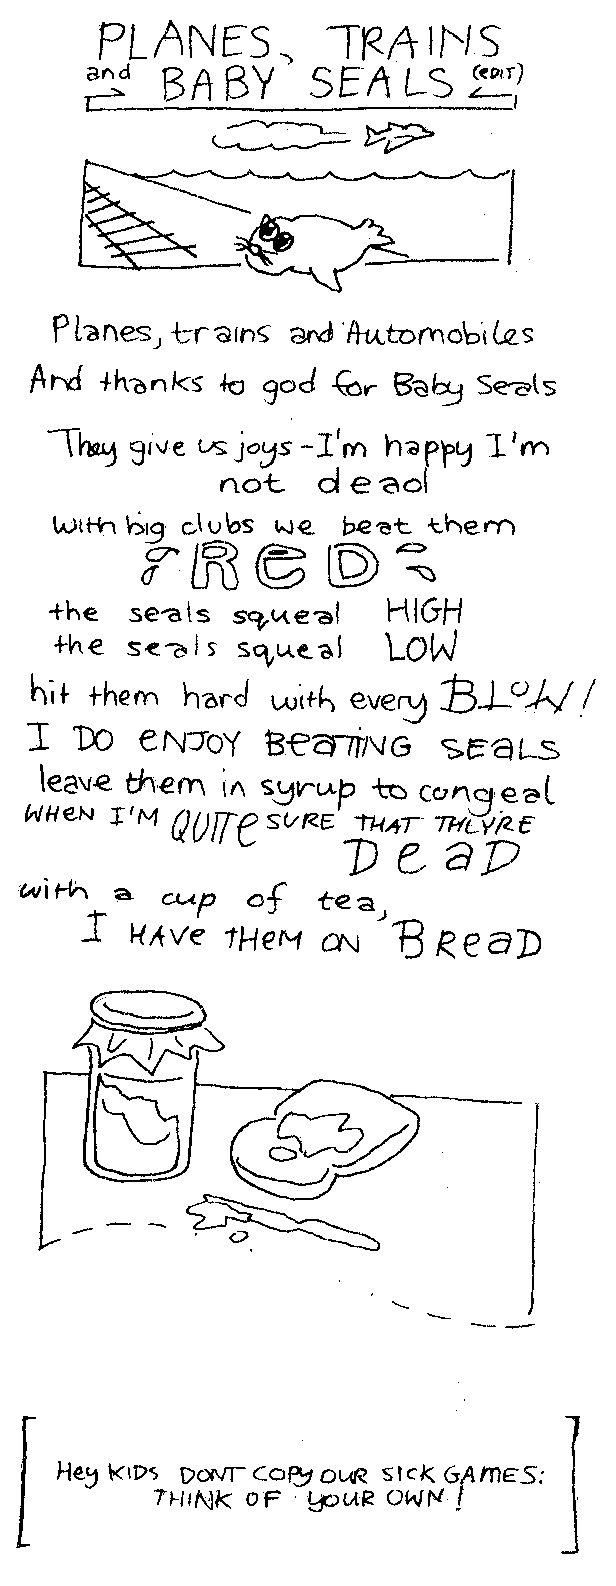 PLANES, TRAINS
and BABY SEALS (edit)
Planes, trains and Automobiles
And thanks to god for Baby Seals
They give us joys - I'm happy I'm
not dead
with big clubs we beat them
RED
the seals squeal HIGH
the seals squeal LOW
hit them hard with every BLOW!
I DO ENJOY BEATING SEALS
leave them in syrup to congeal
WHEN I'M QUITE SURE THAT THEY'RE
DEAD
with a cup of tea,
I HAVE THEM ON BREAD
Hey KIDS DONT COPY OUR SICK GAMES:
THINK OF YOUR OWN!